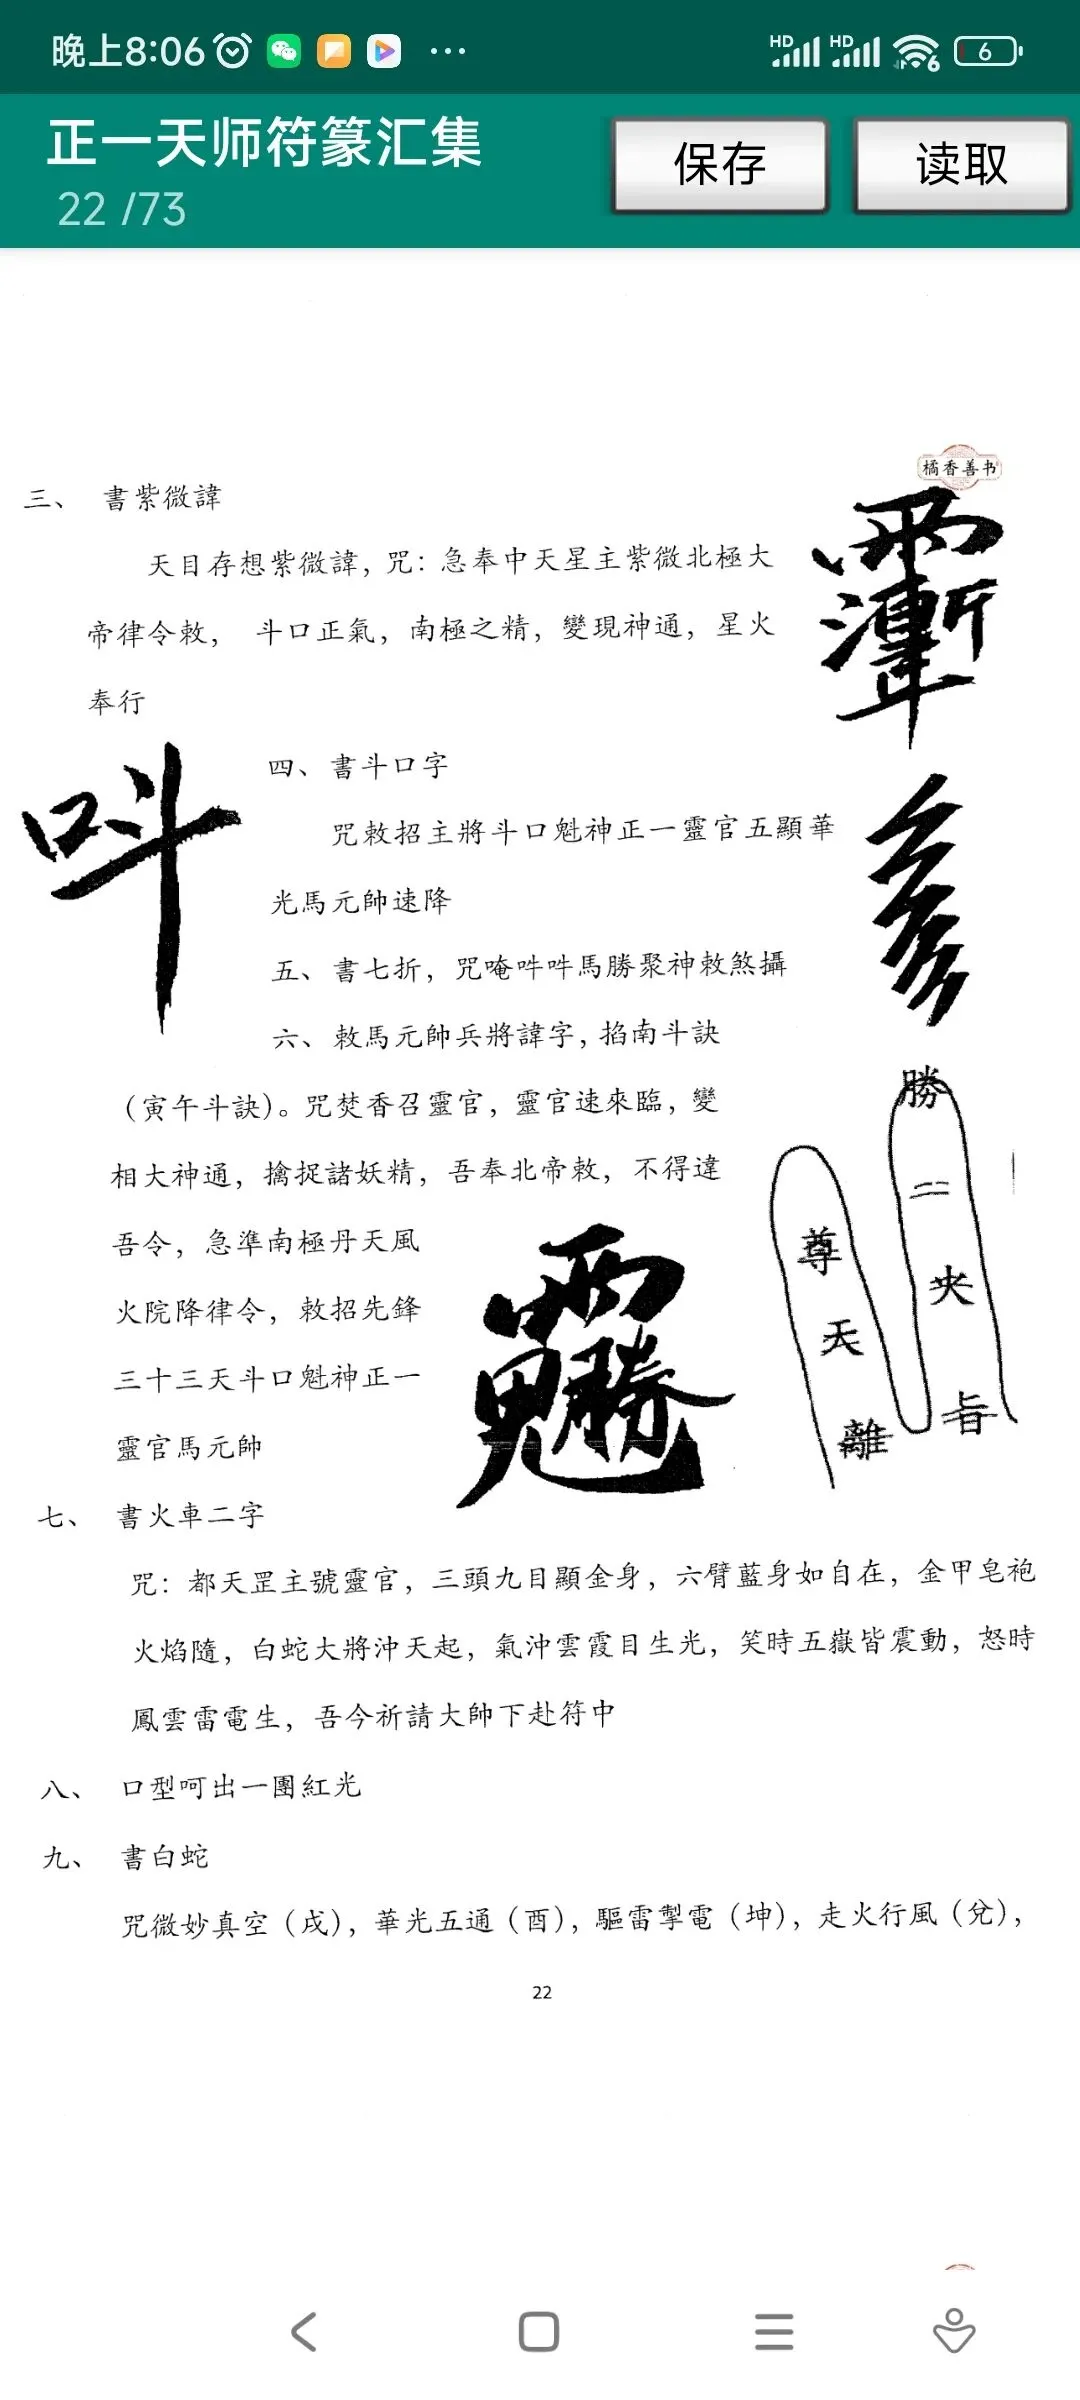 晚上8:06
HD HD 6 6
正一天师符篆汇集
22 /73
保存
读取
橘香善书
三、 書紫微諱
天目存想紫微諱，咒：急奉中天星主紫微北極大
帝律令敕， 斗口正氣，南極之精，變現神通，星火
奉行
四、書斗口字
咒敕招主將斗口魁神正一靈官五顯華
光馬元帥速降
五、書七折，咒唵吽吽馬勝聚神敕煞攝
六、敕馬元帥兵將諱字，掐南斗訣
（寅午斗訣）。咒焚香召靈官，靈官速來臨，變
相大神通，擒捉諸妖精，吾奉北帝敕，不得違
吾令，急準南極丹天風
火院降律令，敕招先鋒
三十三天斗口魁神正一
靈官馬元帥
勝
二
夹
尊
天
離
七、 書火車二字
咒：都天罡主號靈官，三頭九目顯金身，六臂藍身如自在，金甲皂袍
火焰隨，白蛇大將沖天起，氣沖雲霞目生光，笑時五嶽皆震動，怒時
鳳雲雷電生，吾今祈請大帥下赴符中
八、 口型呵出一團紅光
九、 書白蛇
咒微妙真空（戌），華光五通（酉），驅雷掣電（坤），走火行風（兌），
22